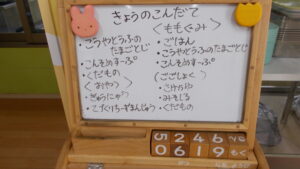 きょうのこんだて
・こうやどうふの
たまごとじ
・こんそめすーぷ
・くだもの
<おやつ>
・ぎゅうにゅう
<ももぐみ>
・ごはん
・こうやどうふのたまごとじ
・こんそめすーぷ
(ごごしょく)
・みそしる
・くだもの
5 2 4 6
0 6 1 9 もく